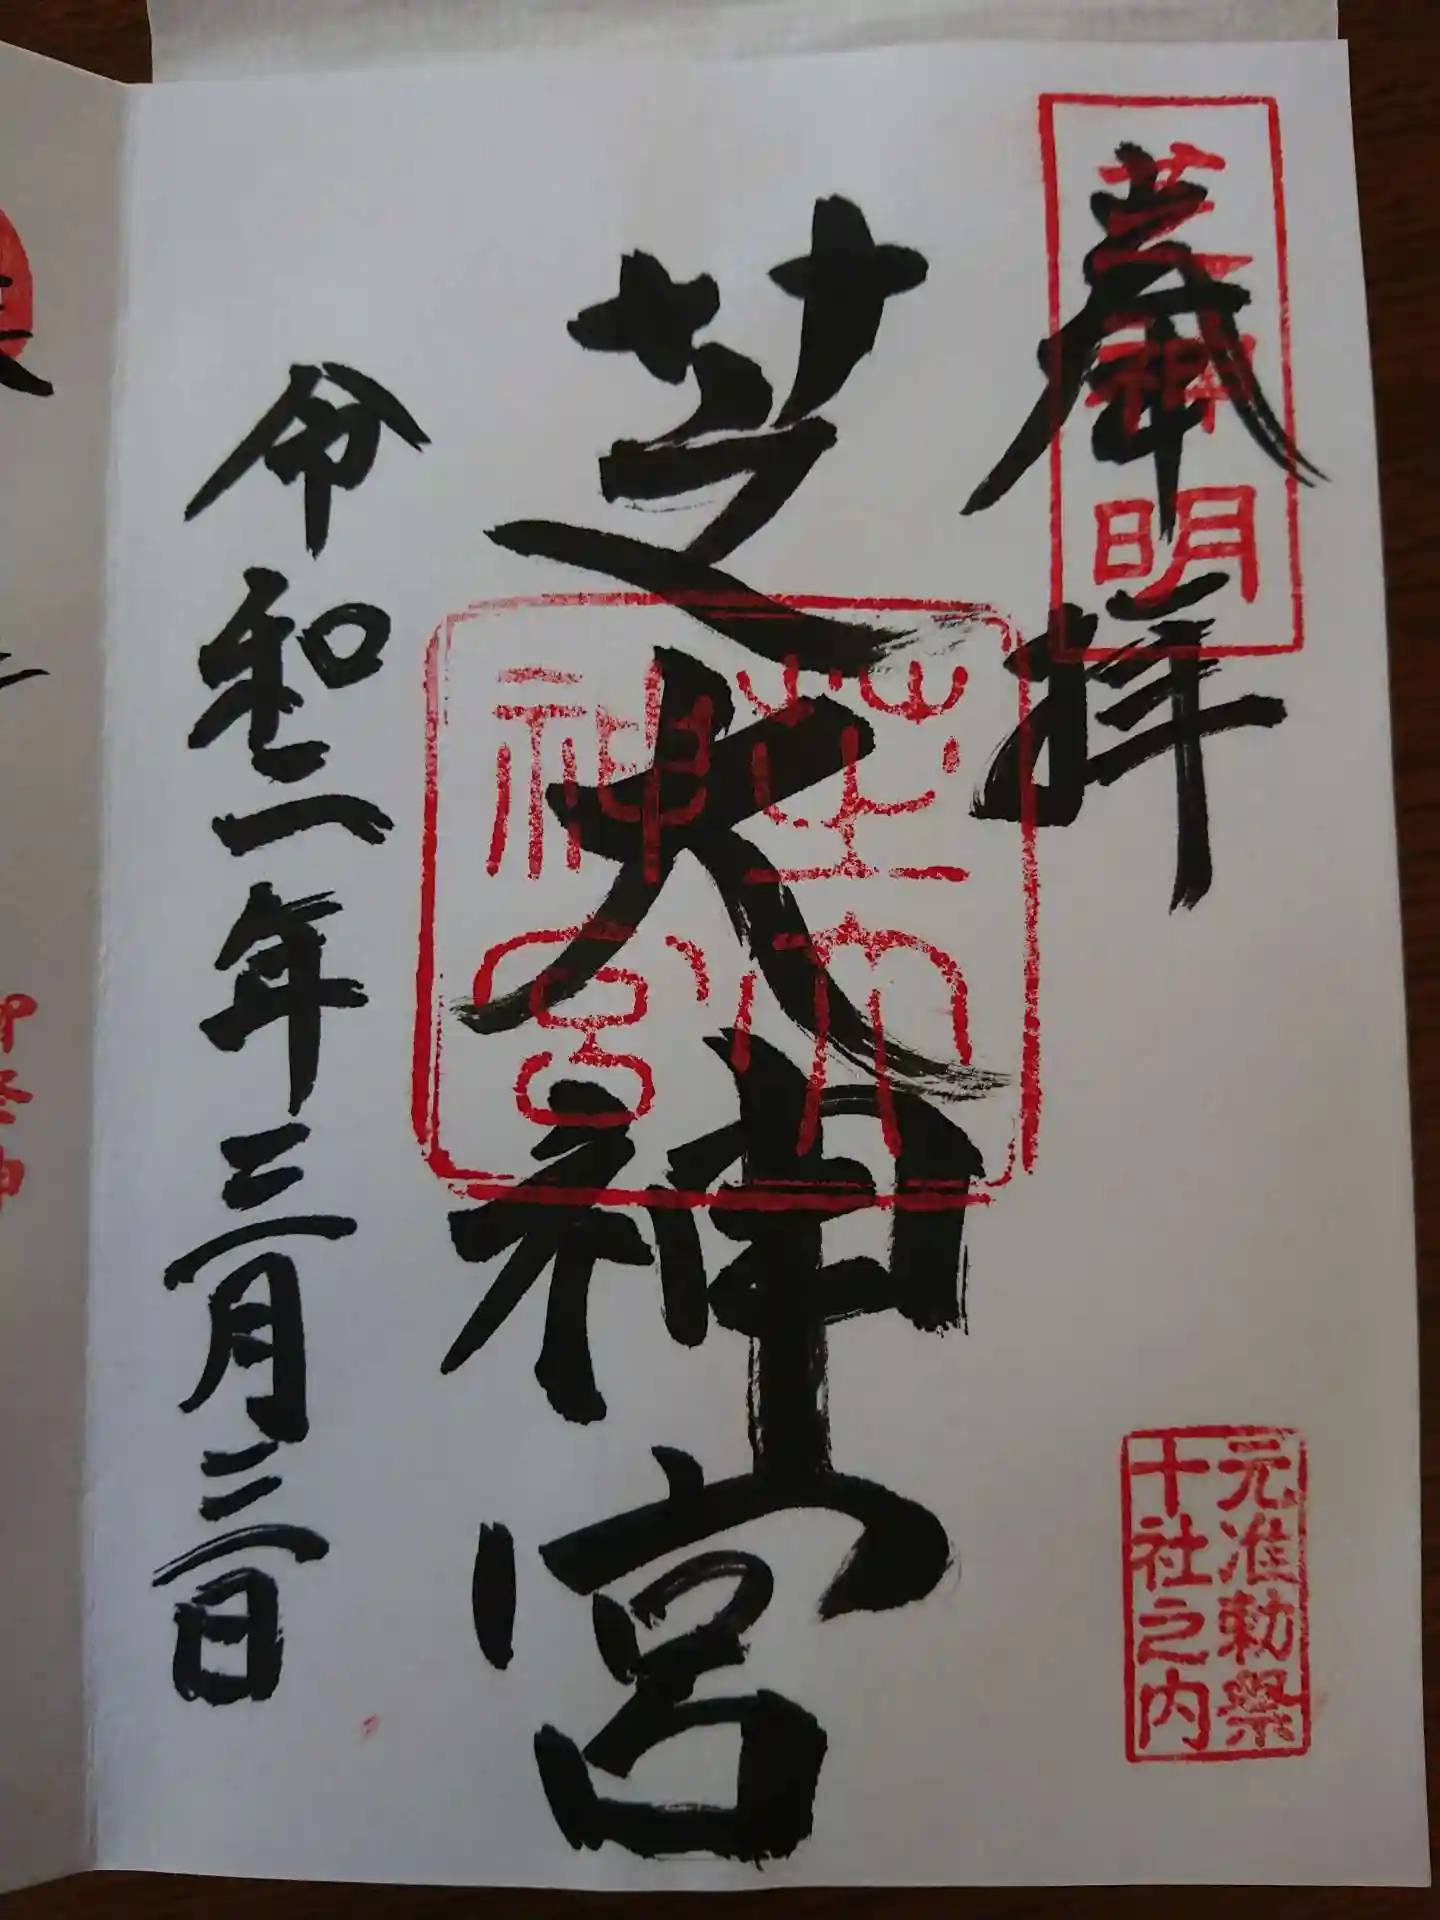 奉拝
芝神明
元准勅祭
十社之内
芝大神宮
芝大
神宮
令和二年三月三日